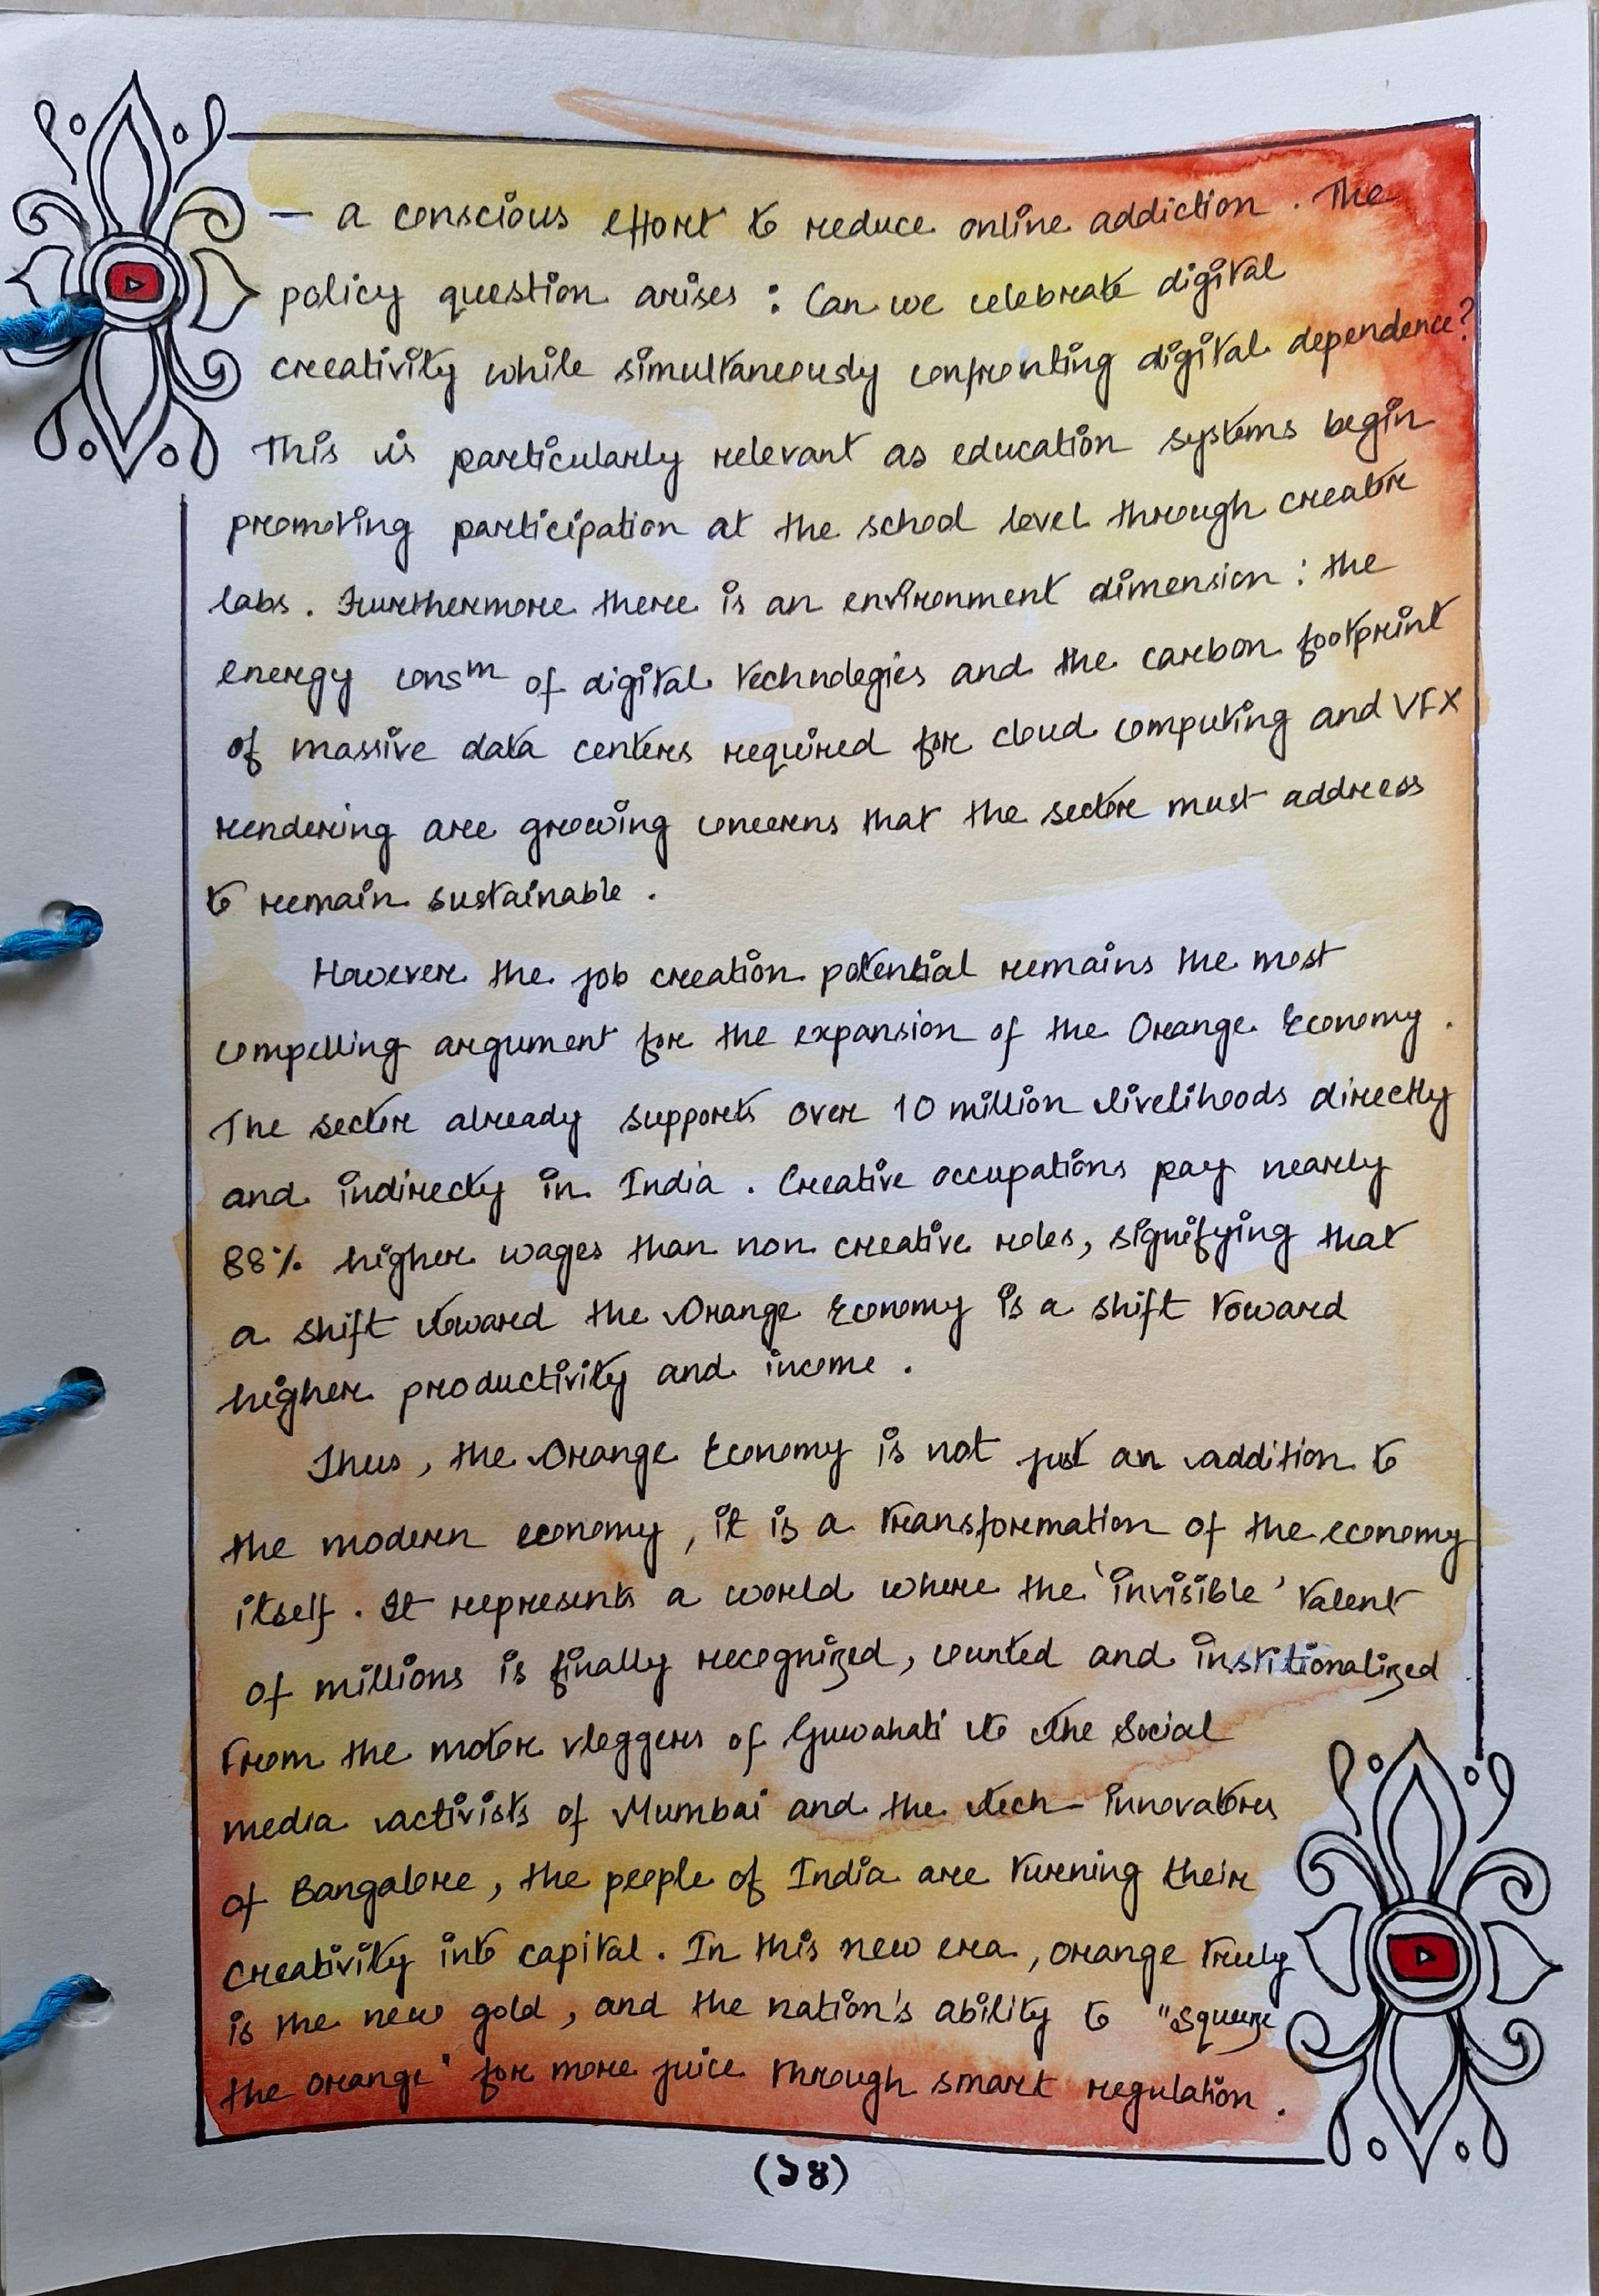 — a conscious effort to reduce online addiction. The
policy question arises : Can we celebrate digital
creativity while simultaneously confronting digital dependence?
This is particularly relevant as education systems begin
promoting participation at the school level through creator
labs. Furthermore there is an environment dimension : the
energy consᵐ of digital technologies and the carbon footprint
of massive data centers required for cloud computing and VFX
rendering are growing concerns that the sector must address
to remain sustainable.
However the job creation potential remains the most
compelling argument for the expansion of the Orange Economy.
The sector already supports over 10 million livelihoods directly
and indirecty in India. Creative occupations pay nearly
88% higher wages than non creative roles, signifying that
a shift toward the Orange Economy is a shift toward
higher productivity and income.
Thus, the Orange Economy is not just an addition to
the modern economy, it is a transformation of the economy
itself. It represents a world where the 'invisible' talent
of millions is finally recognized, counted and institionalized
From the motor vloggers of Guwahati to the Social
media activists of Mumbai and the tech-innovators
of Bangalore, the people of India are turning their
creativity into capital. In this new era, orange truly
is the new gold, and the nation's ability to "squeeze
the orange" for more juice through smart regulation.
(১৪)